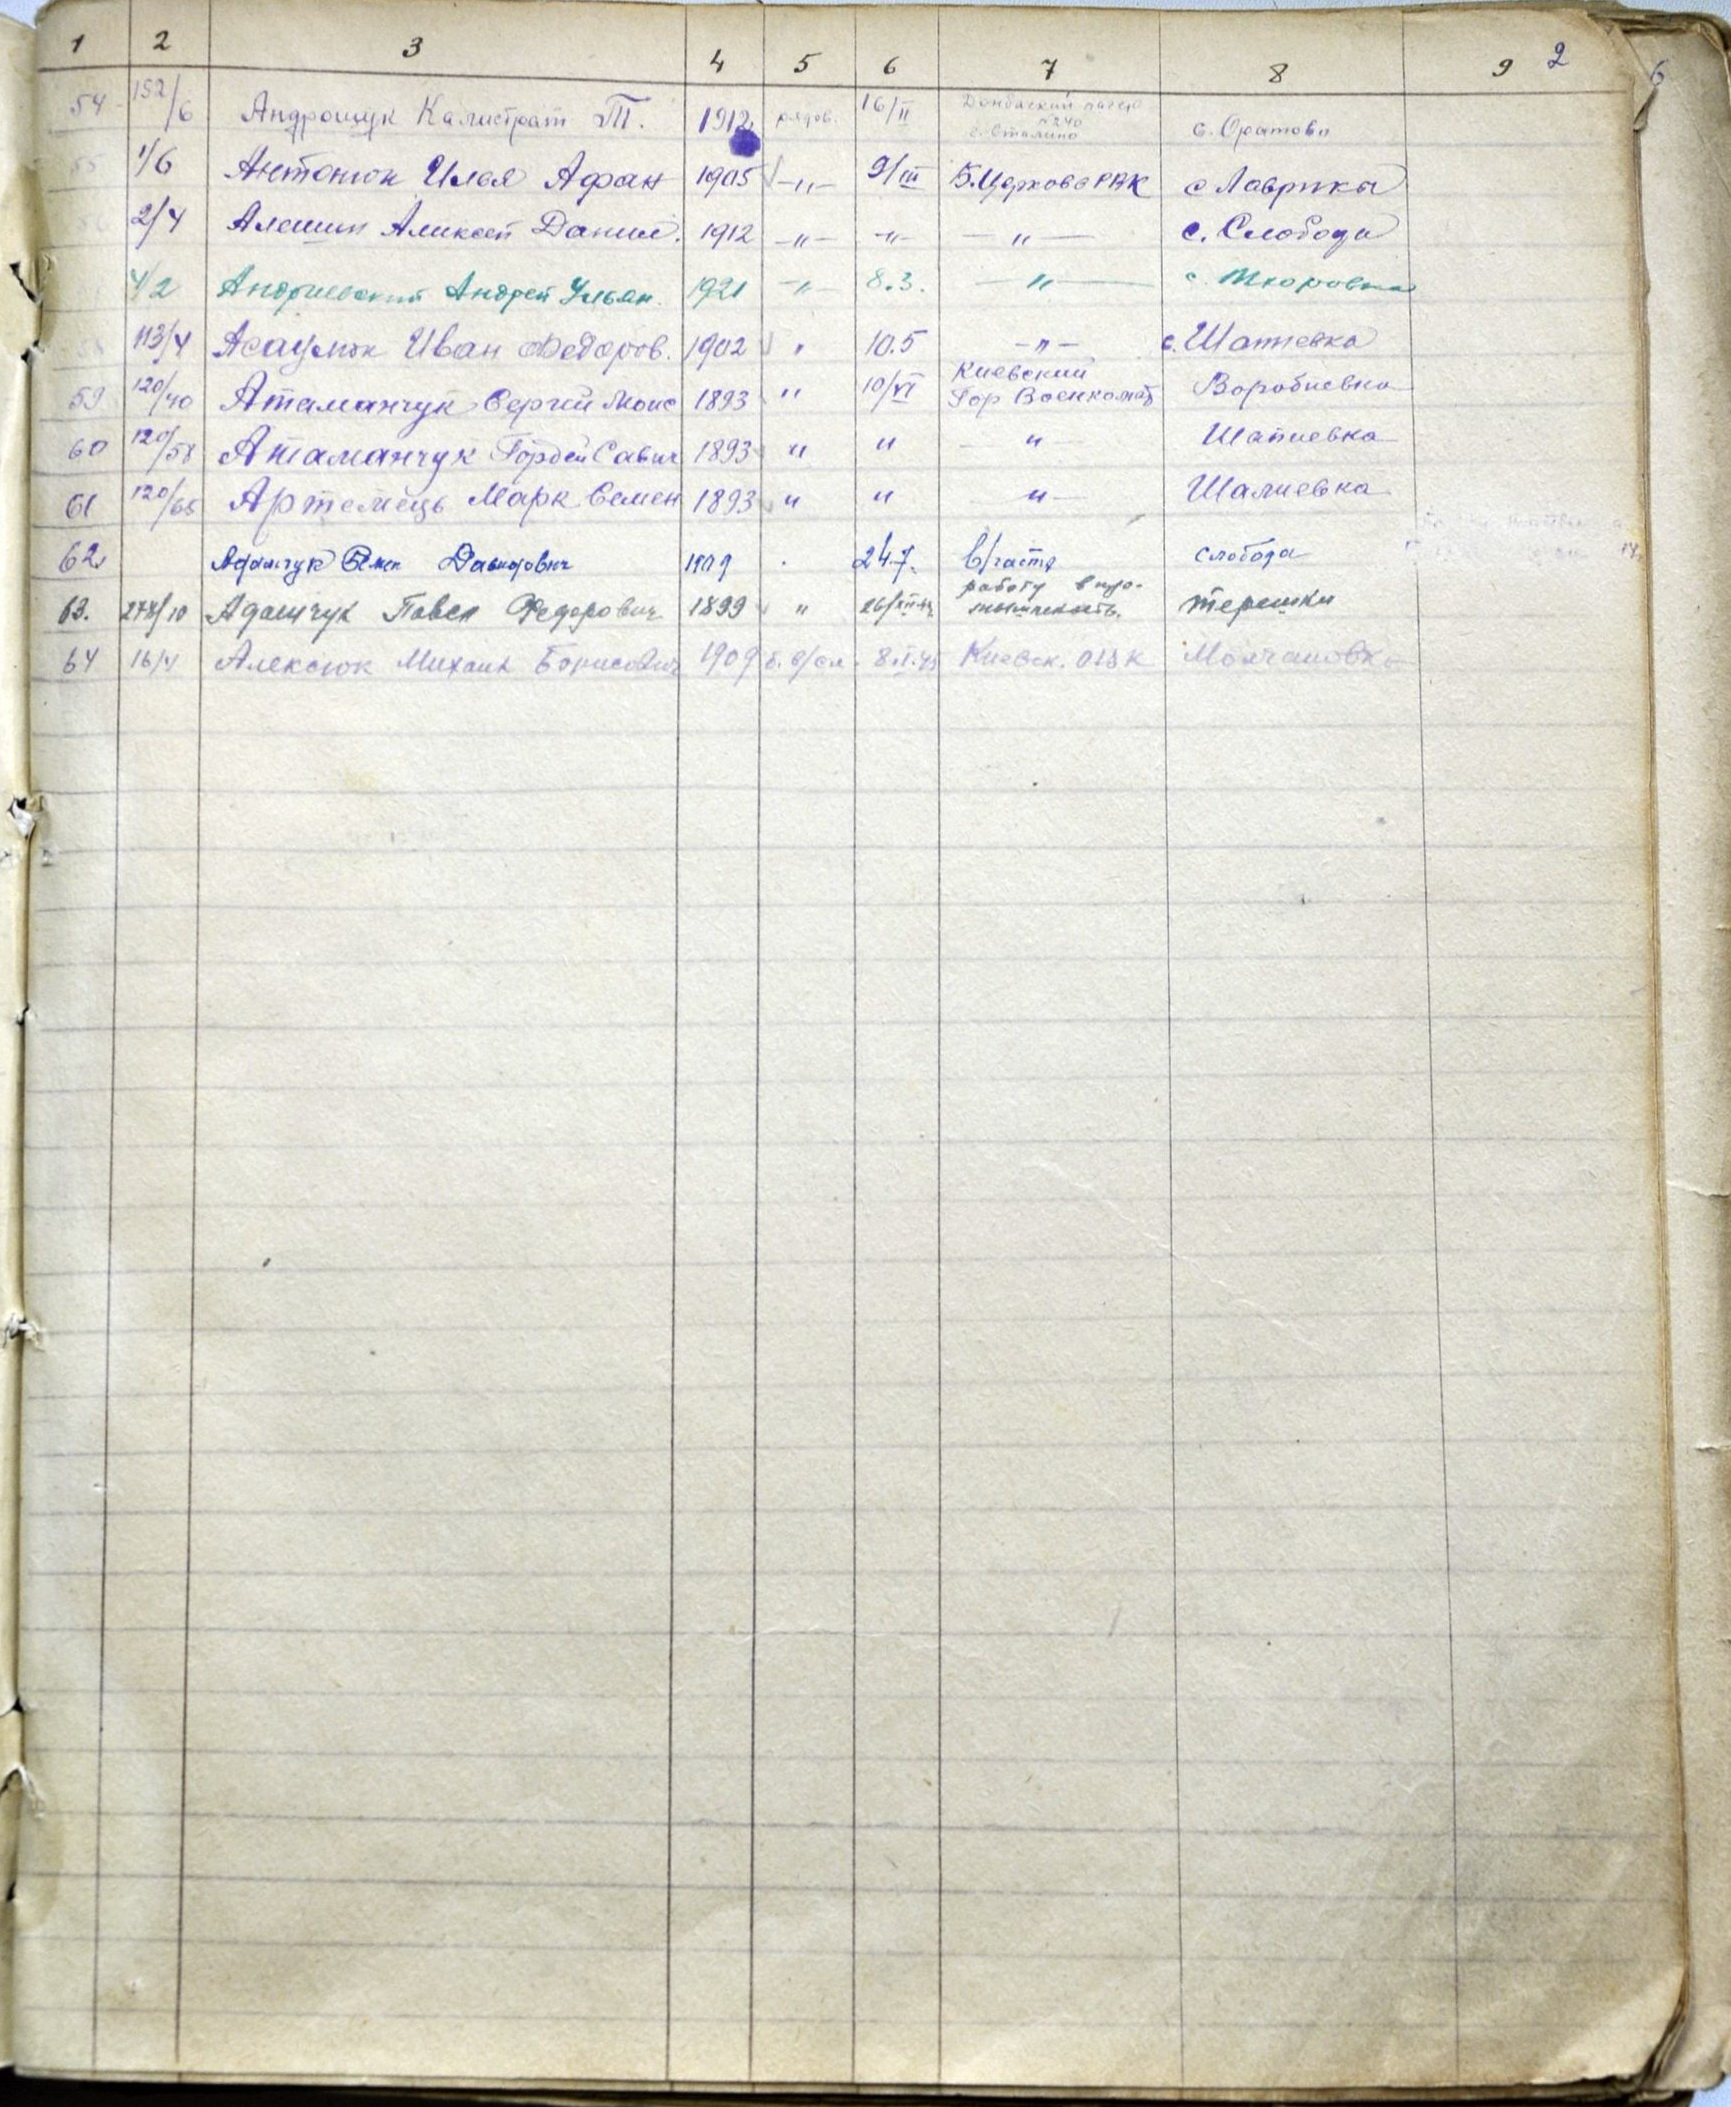 1 2 3 4 5 6 7 8 9 2
6
54 152/6 Андрощук Калистрат Т. 1912 рядов. 16/II Донбаский лагер №240 г. Сталино с. Оратови
55 1/6 Антонюк Илья Афан 1905 -"- 9/III Б.Церкове РВК с Лаврики
56 2/4 Алешин Алексей Данил. 1912 -"- -"- -"- с. Слобода
4/2 Андриевский Андрей Ульян. 1921 -"- 8.3. -"- с.
113/4 Асаулюк Иван Федоров. 1902 " 10.5 -"- с.
59 120/40 Атаманчук Сергий Моис 1893 " 10/VI Киевский Гор Военкомат Воробиевка
60 120/58 Атаманчук Гордей Савич 1893 " " " Шапиевка
61 120/65 Артемець Марк Семен 1893 " " " Шалиевка
62 Адамчук Давидович 1909 24.7. В/часть слобода
63. 278/10 Адамчук Павел Федорович 1899 " работу в про- терешки
64 16/4 Алексюк Михаил Борисович 1909 Киевск. ОВК Молчановка